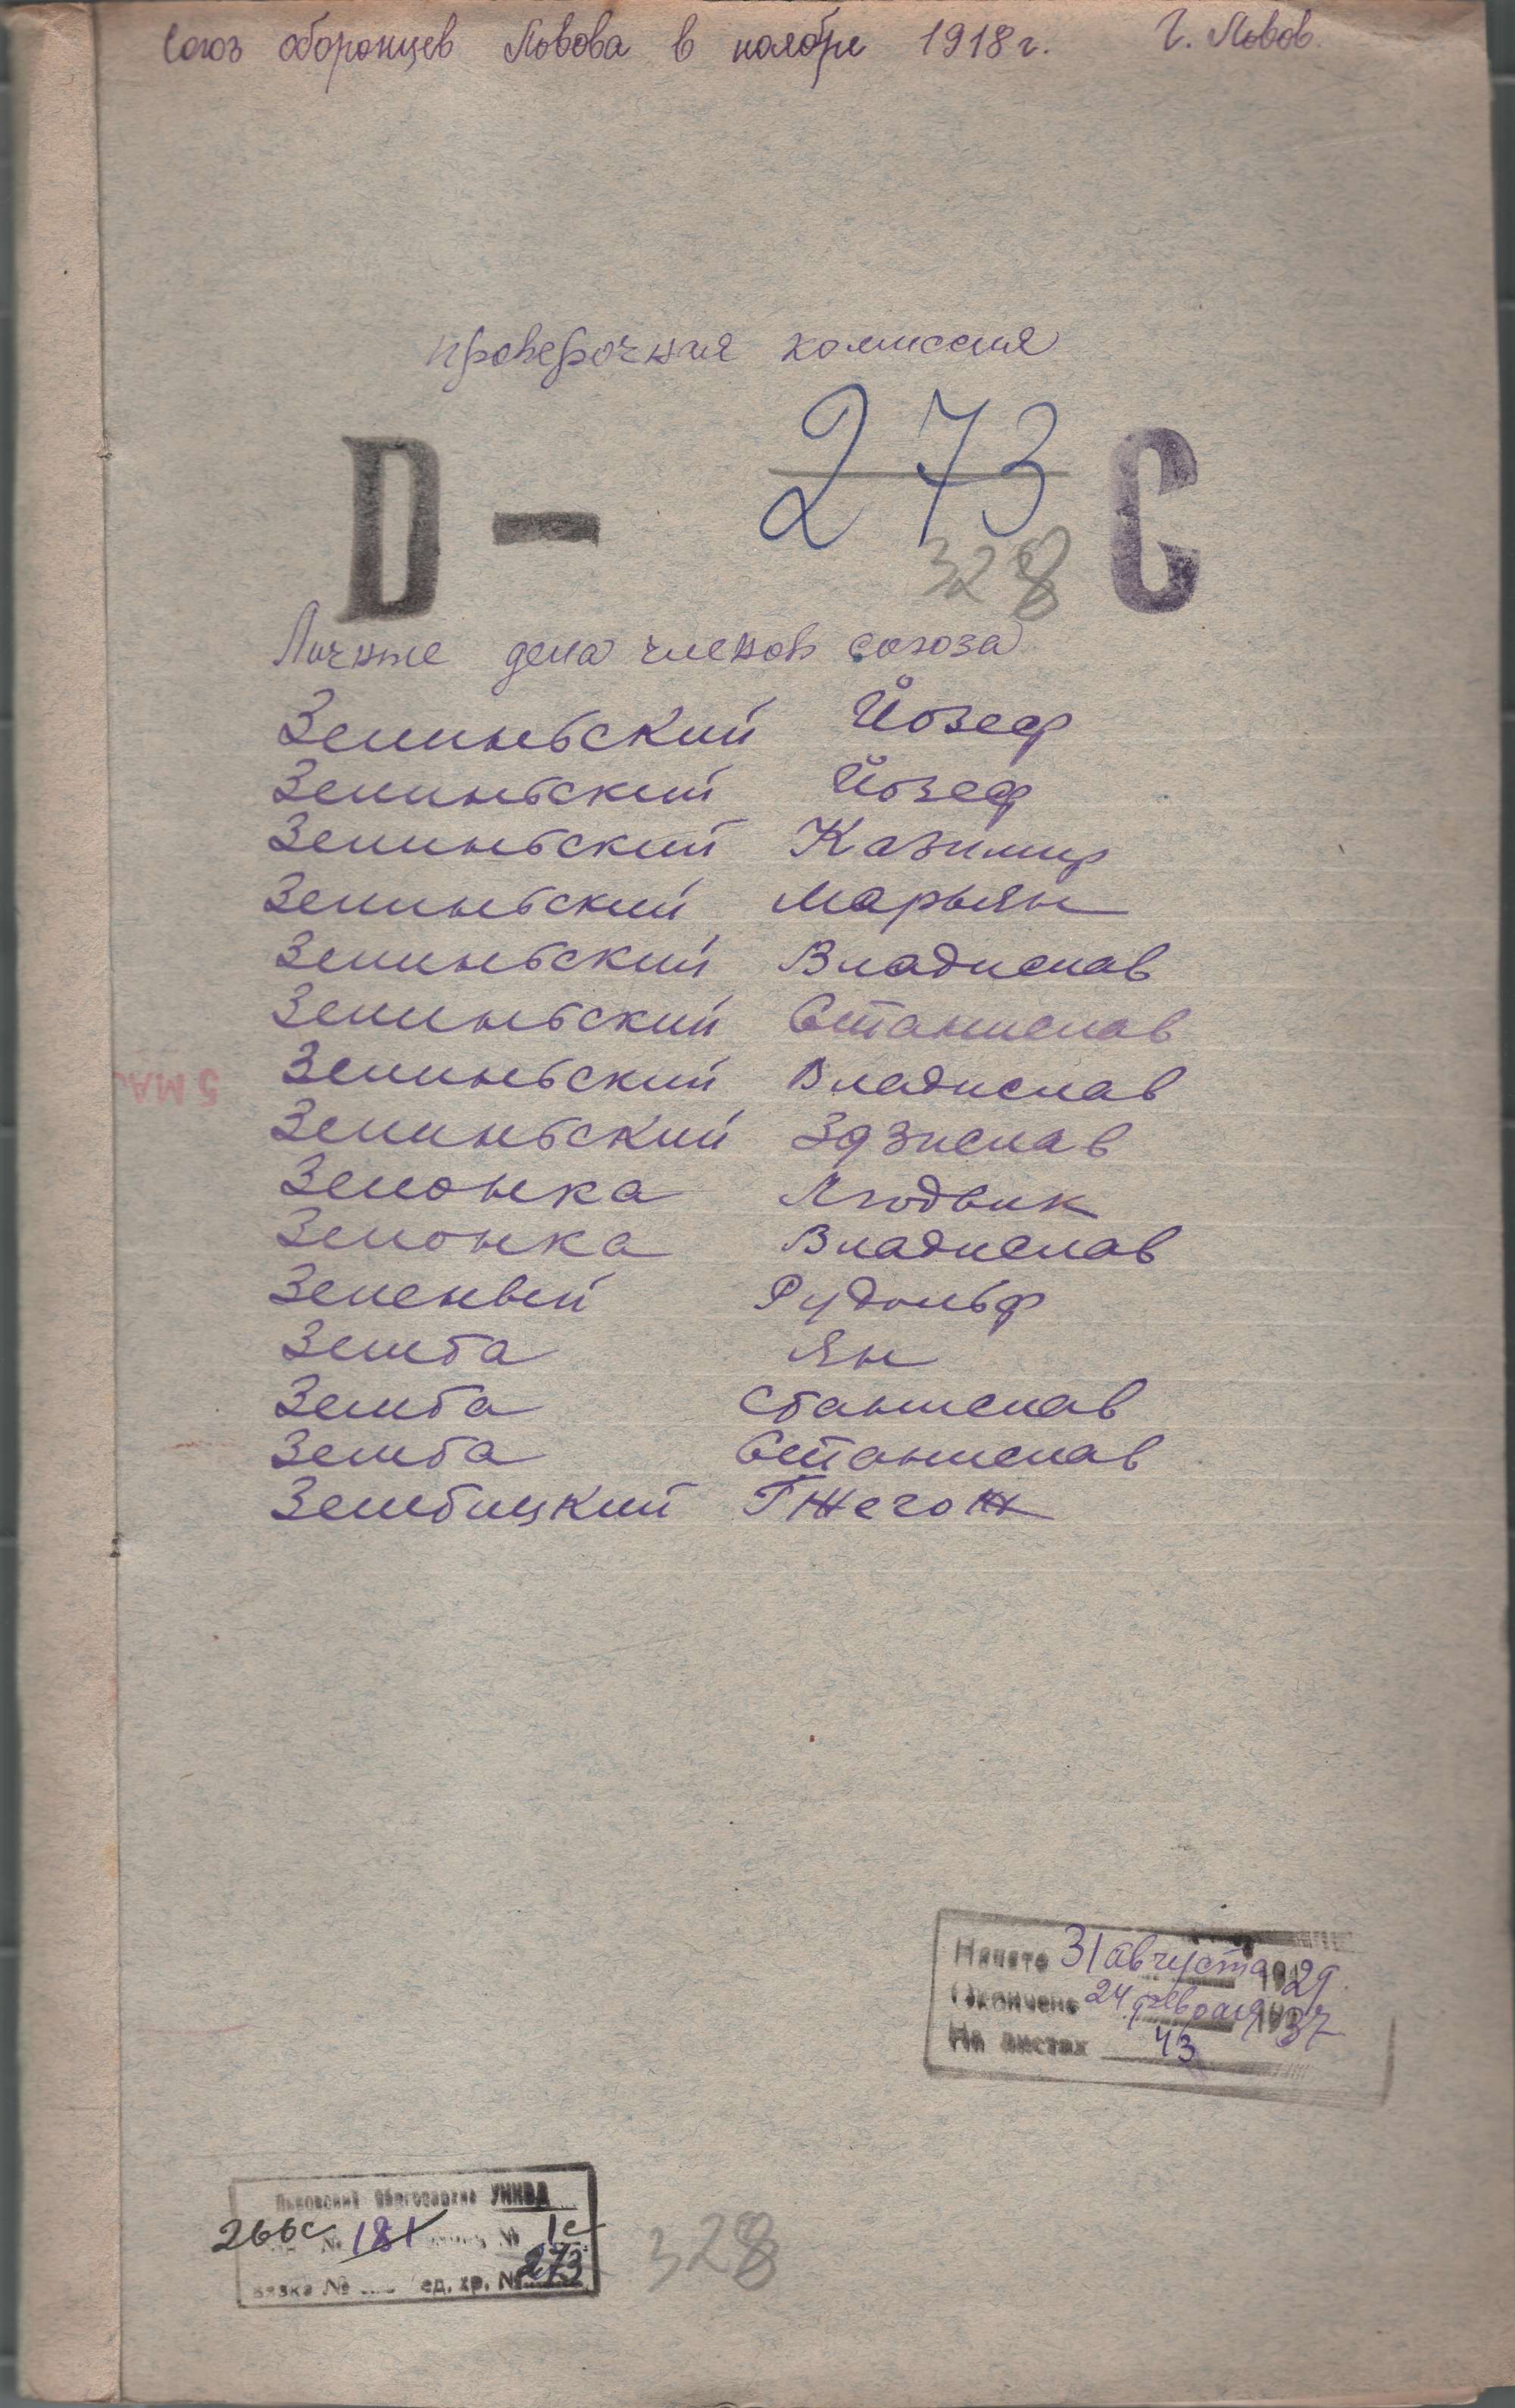 Союз оборонцев Львова в ноябре 1918 г. Г. Львов.
проверочная комиссия
D — 273 С
328
Личные дела членов союза
Зелиньский Йозеф
Зелиньский Йозеф
Зелиньский Казимир
Зелиньский Марьян
Зелиньский Владислав
Зелиньский Станислав
Зелиньский Владислав
Зелиньский Здзислав
Зелонка Людвик
Зелонка Владислав
Зеленый Рудольф
Земба Ян
Земба Станислав
Земба Станислав
Зембицкий Гжегож
5 МАС
Начато 31 августа 1929
Окончено 24 февраля 1937
На листах 43
Львовский Облгосархив УНКВД
266с № 181 опись № 1с
Вязка № ед. хр. № 273
328